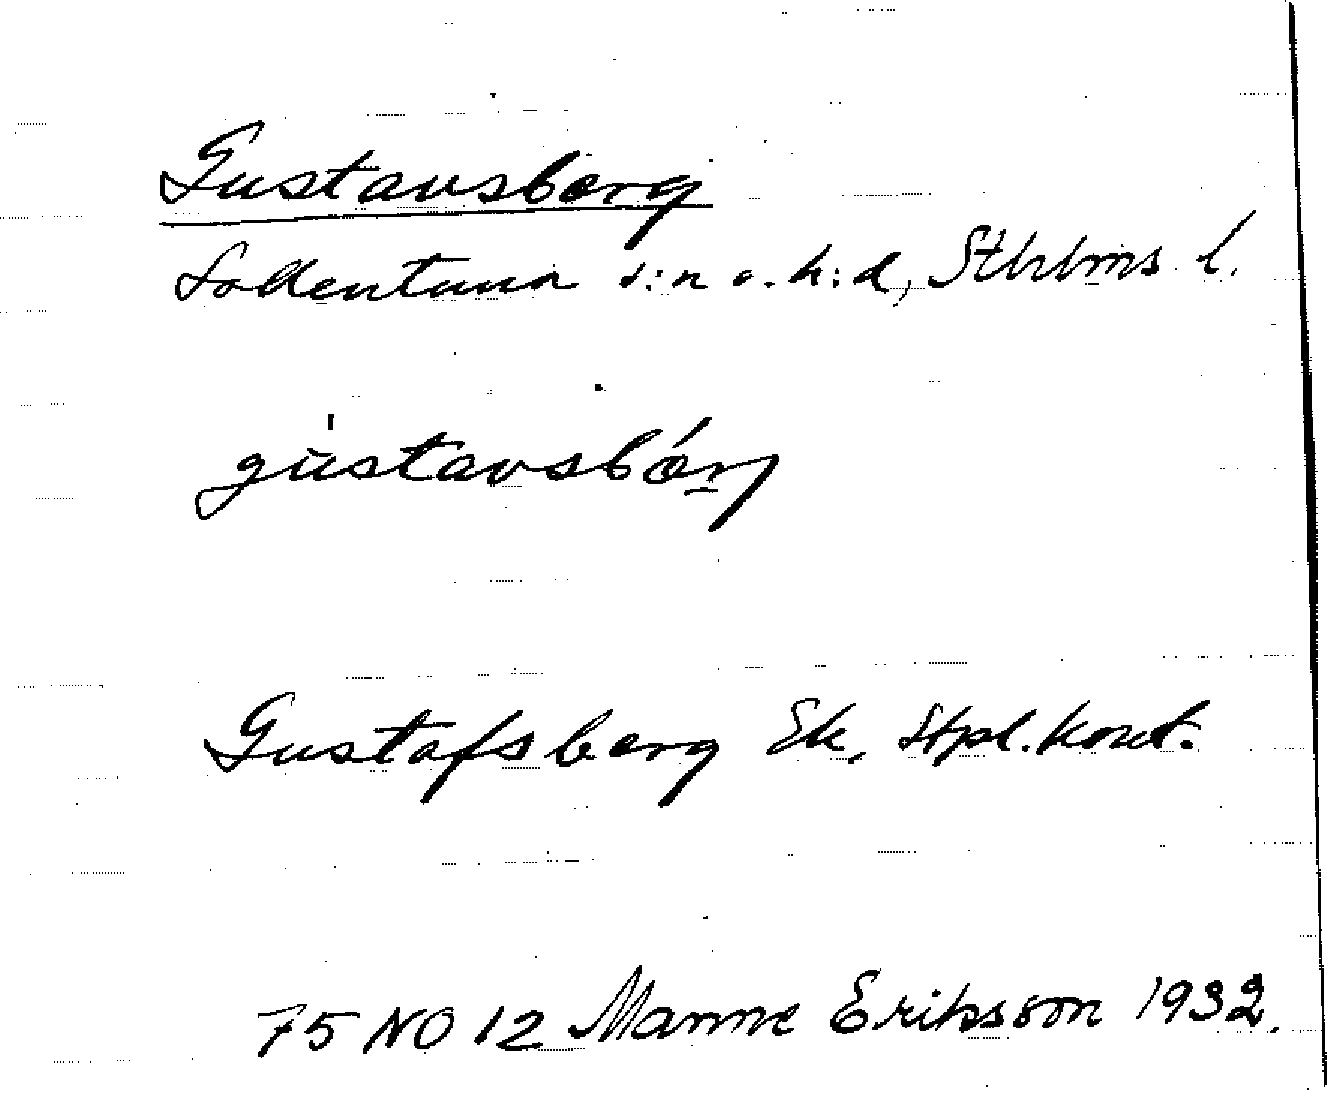 Gustavsberg
Sollentuna s:n o. h:d, Sthlms l.
gùstavsbǽrj
Gustafsberg Ek. Stpl. kont.
75 NO 12 Manne Eriksson 1932.